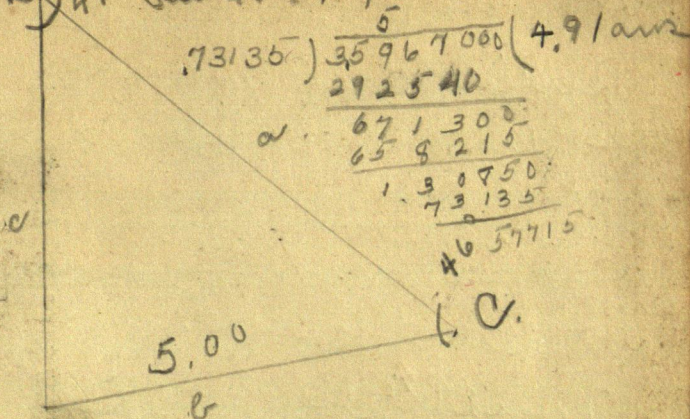 5
.73135 ) 3.5967000 ( 4.91 ans
292540
a. 671300
658215
c 130850
73135
4657715
C.
5.00
b